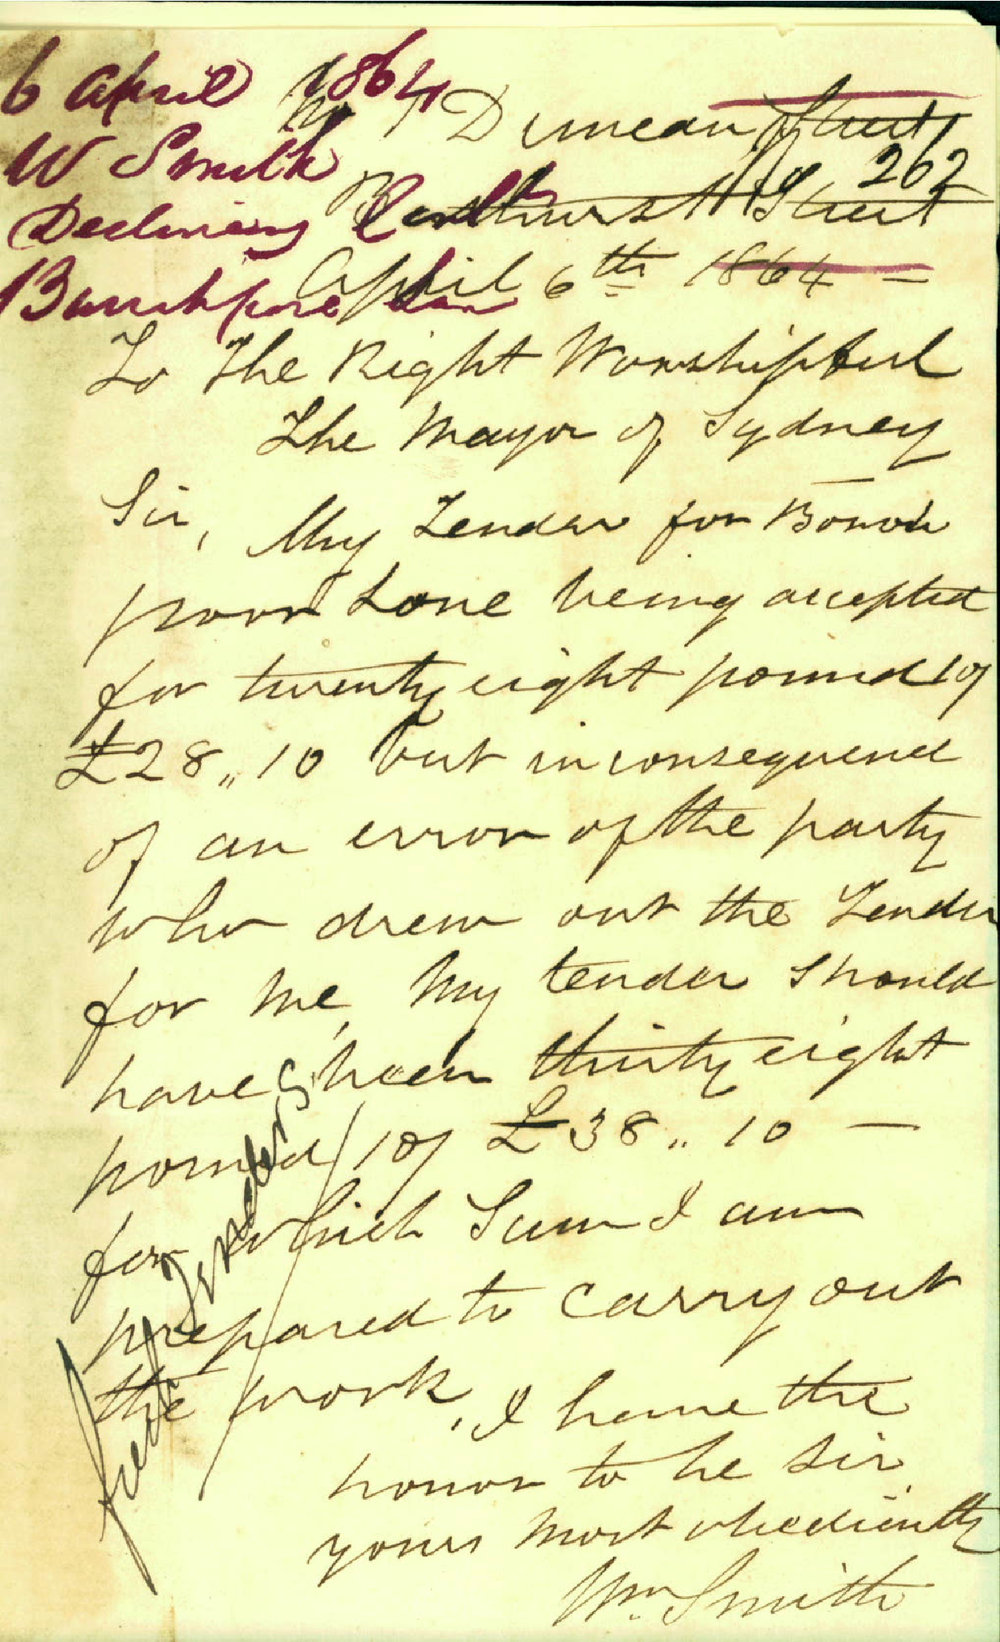 6 April 1864
W Smith
Declining
No 7 Duncan Street
262
Bathurst Street
April 6th 1864 =
To The Right Worshipful
The Mayor of Sydney
Sir, My Tender for
Lane being accepted
for twenty eight pound 10/
£28,, 10 but in consequence
of an error of the party
who drew out the Tender
for Me, My tender should
have been thirty eight
pound / 10/ £38,, 10 —
for which Sum I am
prepared to carry out
the work, I have the
honor to be sir
yours most obediently
Wm Smith
fresh Tenders